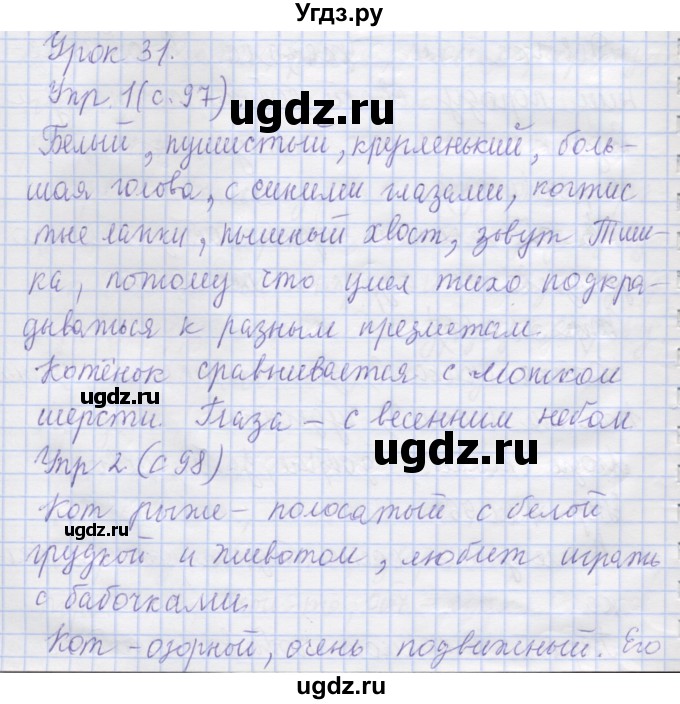 Угдз.ру
Урок 31.
Упр. 1 (с. 97)
ugdz.ru
Белый, пушистый, кругленький, боль-
шая голова, с синими глазами, когтис
тые лапки, пышный хвост, зовут Тиш-
ка, потому что умел тихо подкра-
дываться к разным предметам.
Котёнок сравнивается с мотком
ugdz.ru
шерсти. Глаза – с весенним небом
ugdz.ru
Упр 2. (с 98)
Кот рыже-полосатый с белой
ugdz.ru
грудкой и животом, любит играть
с бабочками.
ugdz.ru
Кот - озорной, очень подвижный. Его
ugdz.ru